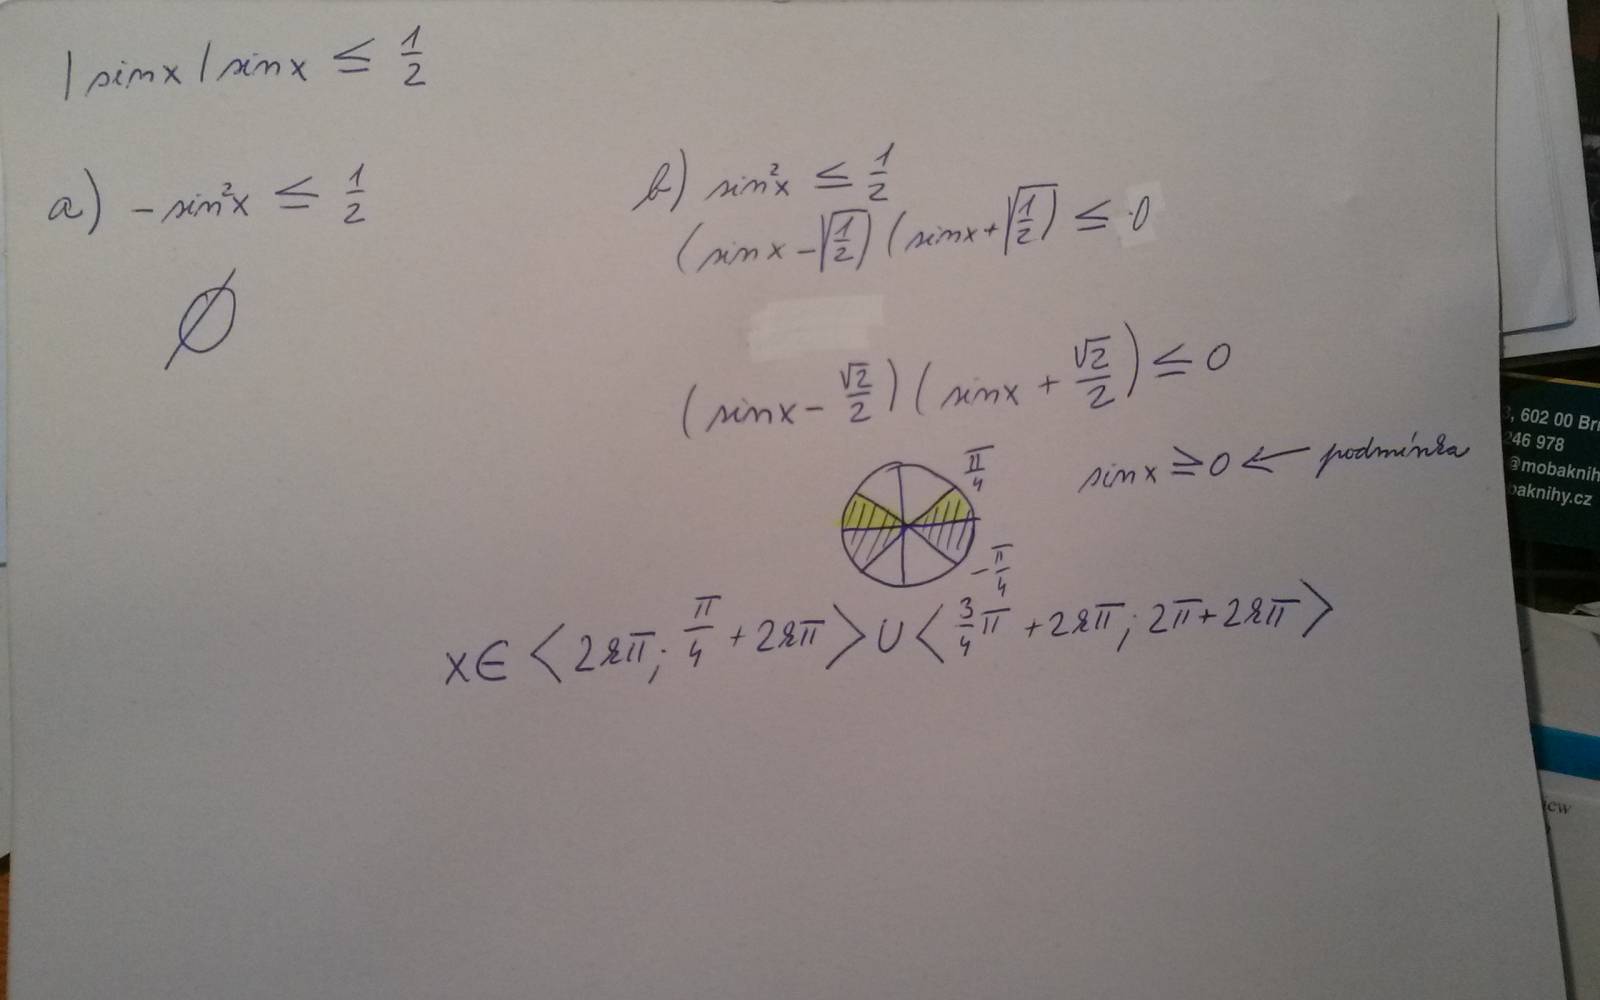 |sin x| sin x ≤ 1/2
a) -sin²x ≤ 1/2
∅
b) sin²x ≤ 1/2
(sin x - √(1/2)) (sin x + √(1/2)) ≤ 0
(sin x - √2/2) (sin x + √2/2) ≤ 0
sin x ≥ 0 ← podmínka
π/4
-π/4
x ∈ <2kπ; π/4 + 2kπ> ∪ <3/4 π + 2kπ; 2π + 2kπ>
, 602 00 Br
246 978
@mobaknih
baknihy.cz